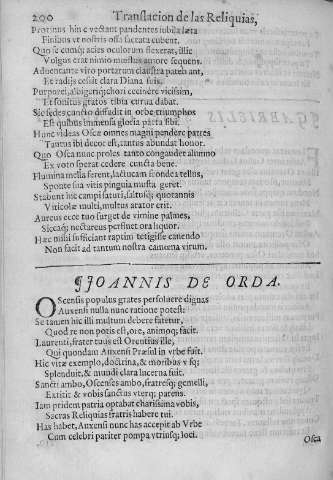 200 Translacion de las Reliquias,
Protinus hinc vectant pendentes iubila læta
Finibus vt nostris ossa sacrata cubent.
Quo se cumq; acies oculorum flexerat, illic
Vulgus erat nimio motus amore sequens.
Aduentante viro portarum claustra patebant,
Et radijs cessit clara Diana suis.
Purporei, albigeriq; chori cecinere vicissim,
Et sonitus gratos tibia curua dabat.
Sic sedes cantio diffudit in orbe triumphos
Est quibus immensa gloria parta sibi.
Hunc videas Oscæ omnes magni pendere patres
Tantus ibi decor est, tantus abundat honor.
Quo Osca nunc proles tanto congaudet alumno
Ex voto sperat cedere cuncta bene.
Flumina mella ferent, lac tucam frondea tellus,
Sponte sua vitis pinguia musta geret.
Stabunt hic campi saturi, saltusq; quotannis
Viticolæ multi, multus arator erit.
Aureus ecce tuo surget de vimine palmes,
Siccaq; nectareus perfluet ora liquor.
Hæc mihi sufficiant raptim tetigisse canendo
Non facit ad tantum nostra camœna virum.
JOANNIS DE ORDA.
Oscensis populus grates persoluere dignas
Auxensi nulla nunc ratione potest:
Se tamen hic illi multum debere fatetur,
Quod re non potis est, ore, animoq; facit.
Laurenti, frater tuus est Orentius ille,
Qui quondam Auxensi Præsul in vrbe fuit.
Hic vitæ exemplo, doctrina, & moribus vsq;
Splenduit, & mundi clara lucerna fuit.
Sancti ambo, Oscenses ambo, fratresq; gemelli,
Extitit & vobis sanctus vterq; parens.
Iam pridem patria optabat charissima vobis,
Sacras Reliquias fratris habere tui.
Has habet, Auxensi nunc has accepit ab Vrbe
Cum celebri pariter pompa vtriusq; loci.
Osca